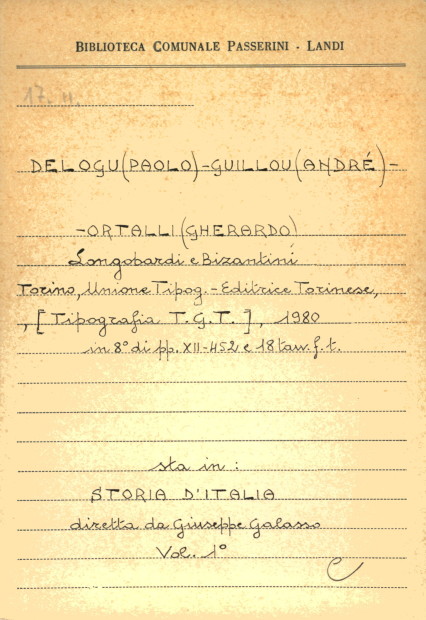 BIBLIOTECA COMUNALE PASSERINI - LANDI
17. H.
DELOGU (PAOLO) - GUILLOU (ANDRÉ) -
- ORTALLI (GHERARDO)
Longobardi e Bizantini
Torino, Unione Tipog. - Editrice Torinese,
, [Tipografia T.G.T.], 1980
in 8° di pp. XII-452 e 18 tav. f. t.
sta in :
STORIA D'ITALIA
diretta da Giuseppe Galasso
Vol. 1°